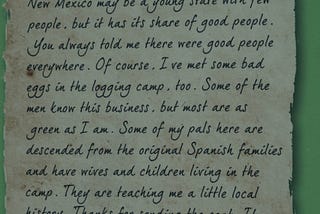 New Mexico may be a young state with few
people, but it has its share of good people.
You always told me there were good people
everywhere. Of course, I've met some bad
eggs in the logging camp, too. Some of the
men know this business, but most are as
green as I am. Some of my pals here are
descended from the original Spanish families
and have wives and children living in the
camp. They are teaching me a little local
history. Thanks for sending the